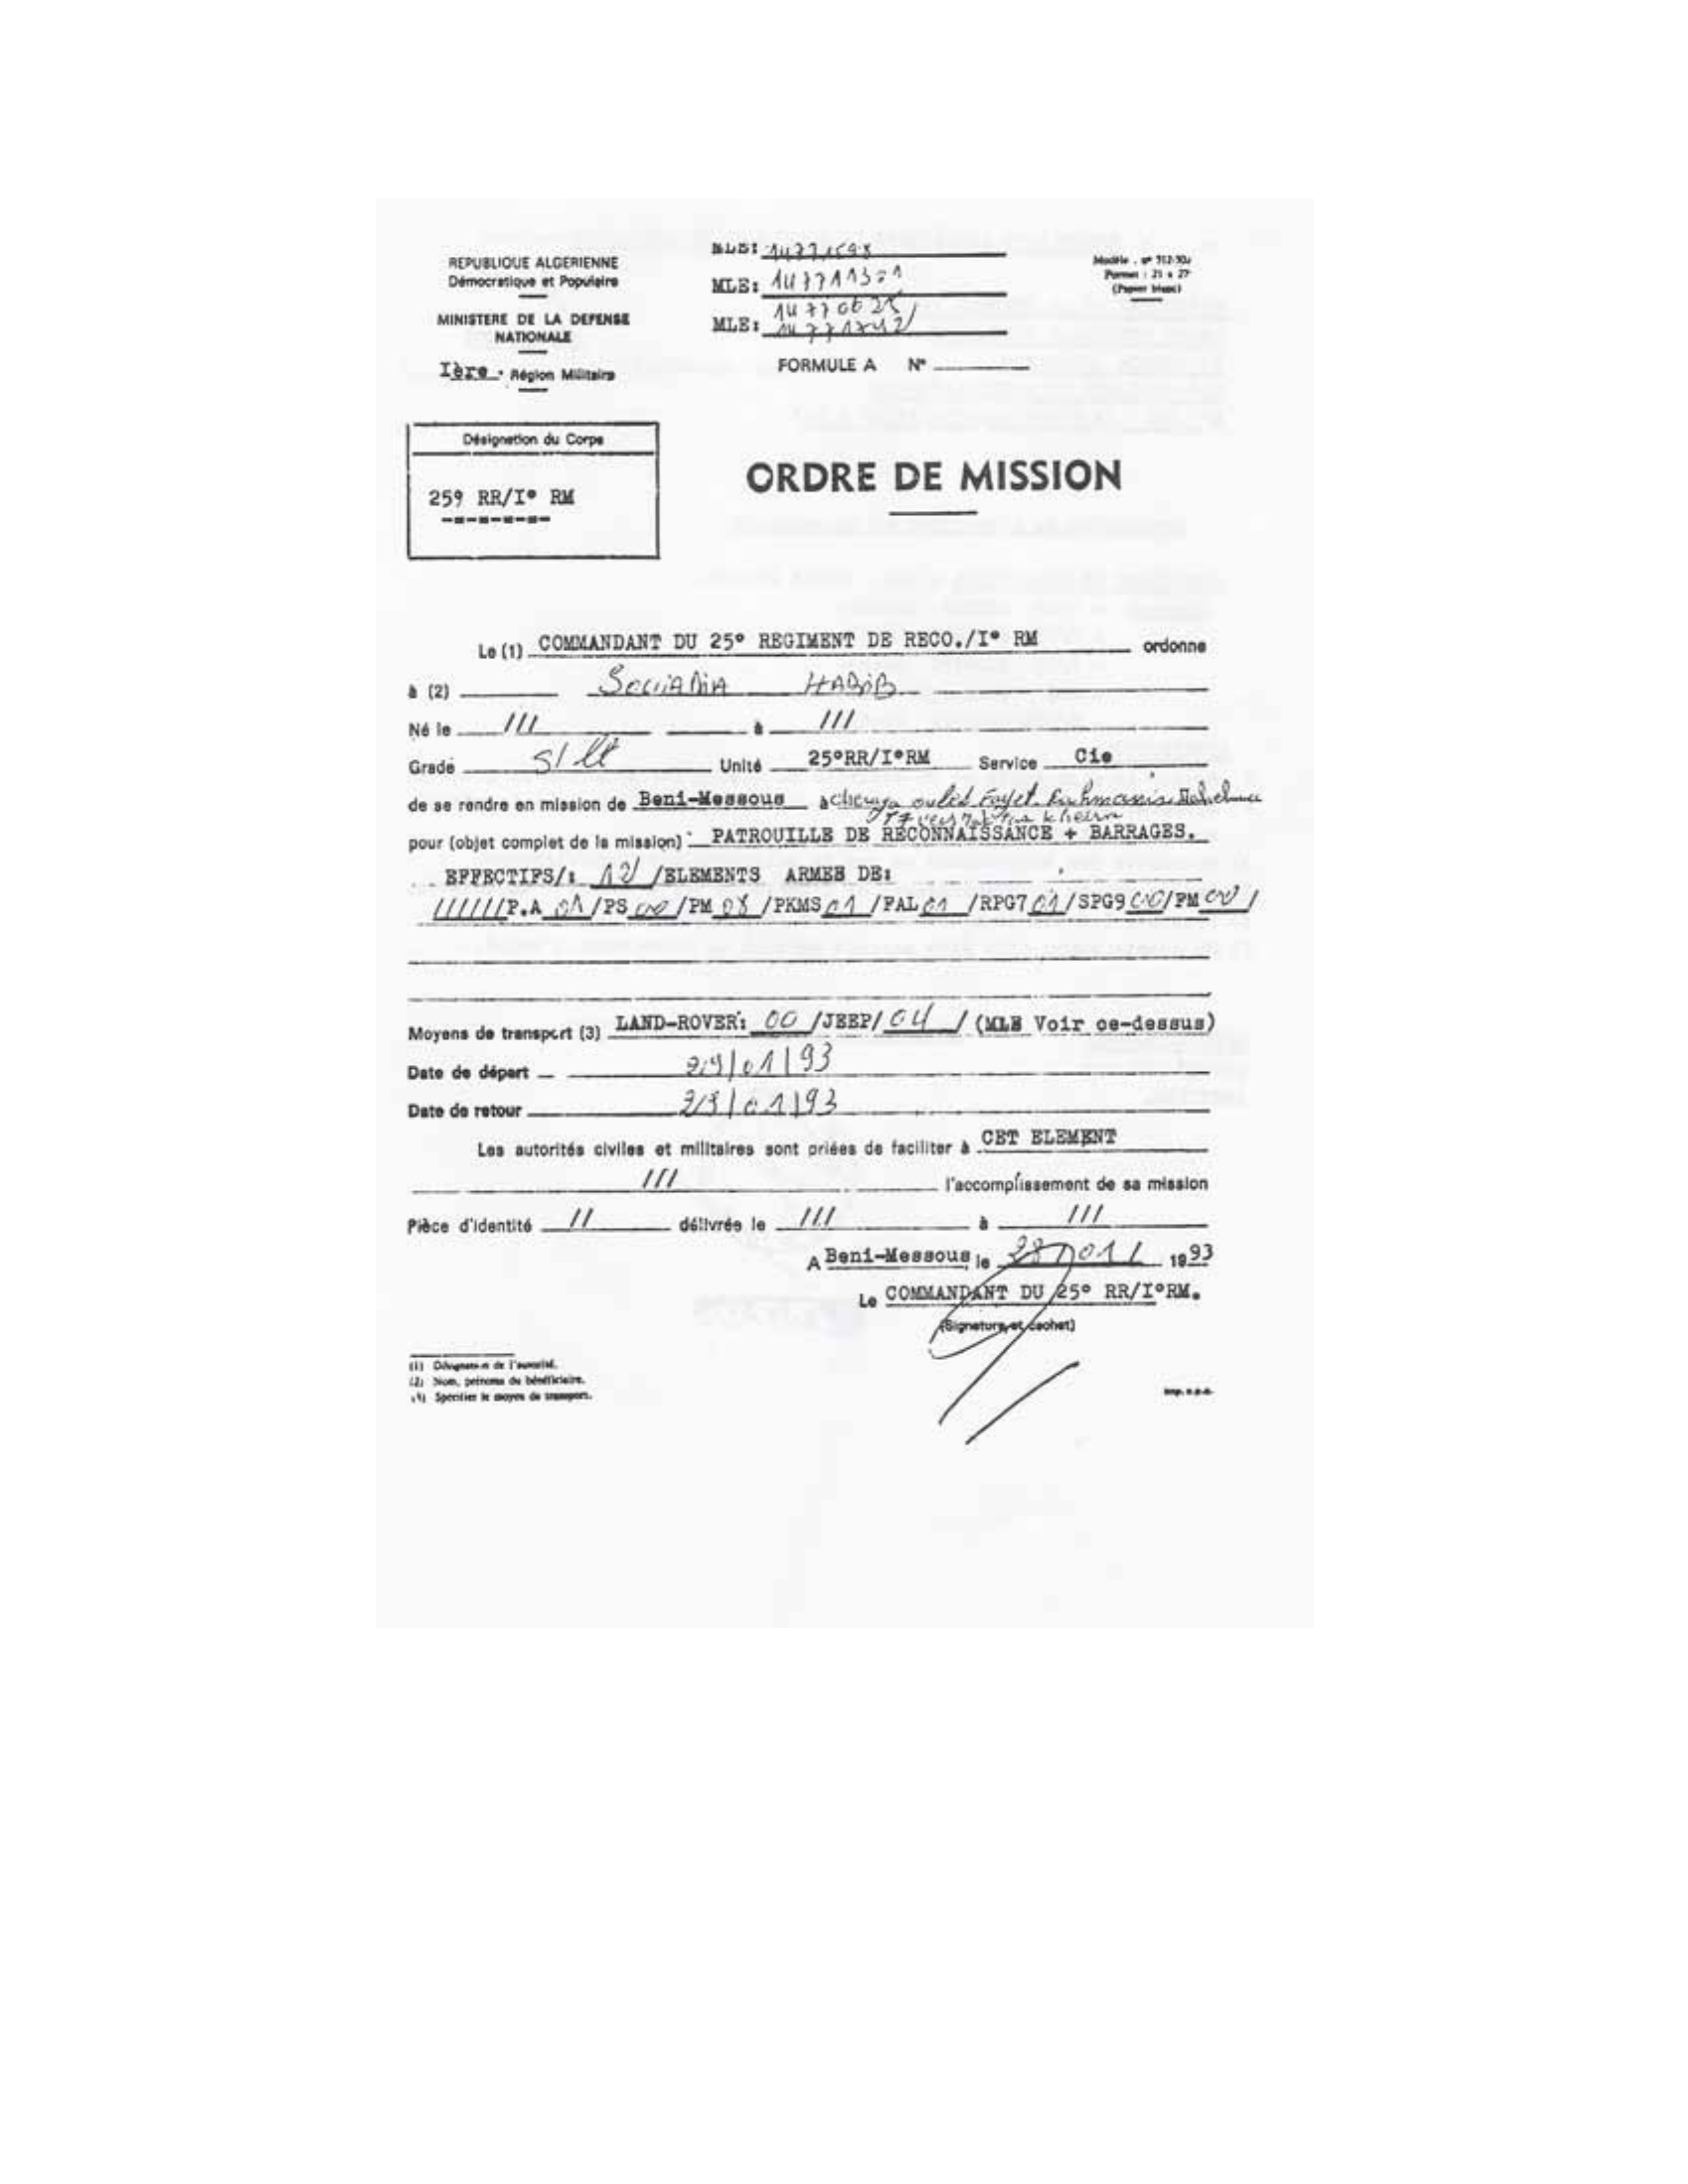 REPUBLIQUE ALGERIENNE
Démocratique et Populaire
MINISTERE DE LA DEFENSE
NATIONALE
Ière Région Militaire
MLE:
MLE:
MLE:
FORMULE A N°
Modèle
Format : 21 x 27
(Papier blanc)
Désignation du Corps
259 RR/I° RM
ORDRE DE MISSION
Le (1) COMMANDANT DU 25° REGIMENT DE RECO./I° RM ordonne
à (2) SOUAIDIA HABIB
Né le /// à ///
Grade S/Lt Unité 25°RR/I°RM Service Cie
de se rendre en mission de Beni-Messous à cheraga ouled Fayet
pour (objet complet de la mission) PATROUILLE DE RECONNAISSANCE + BARRAGES.
EFFECTIFS/: 12 /ELEMENTS ARMES DE:
//////P.A 01 /PS 00 /PM 08 /PKMS 01 /FAL 01 /RPG7 01 /SPG9 00/FM 00 /
Moyens de transport (3) LAND-ROVER: 00 /JEEP/ 04 / (MLE Voir ce-dessus)
Date de départ /01/93
Date de retour /01/93
Les autorités civiles et militaires sont priées de faciliter à CET ELEMENT
/// l'accomplissement de sa mission
Pièce d'identité // délivrée le /// à ///
A Beni-Messous, le 28 01 1993
Le COMMANDANT DU 25° RR/I°RM.
(Signature et cachet)
(1) Désignation de l'autorité.
(2) Nom, prénoms du bénéficiaire.
(3) Spécifier le moyen de transport.